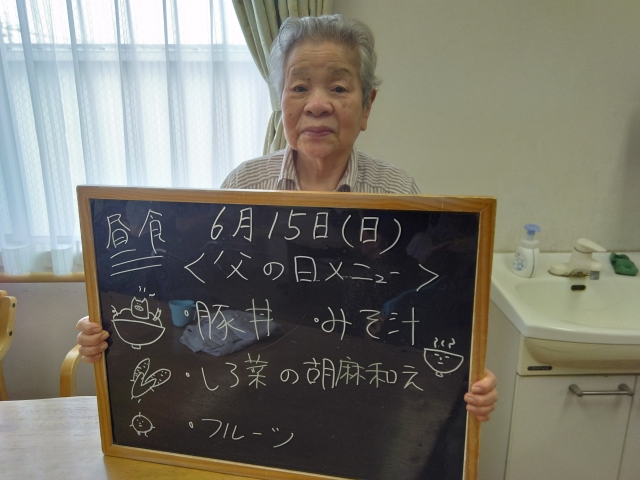 昼食 6月15日(日)
<父の日メニュー>
・豚丼 ・みそ汁
・しろ菜の胡麻和え
・フルーツ